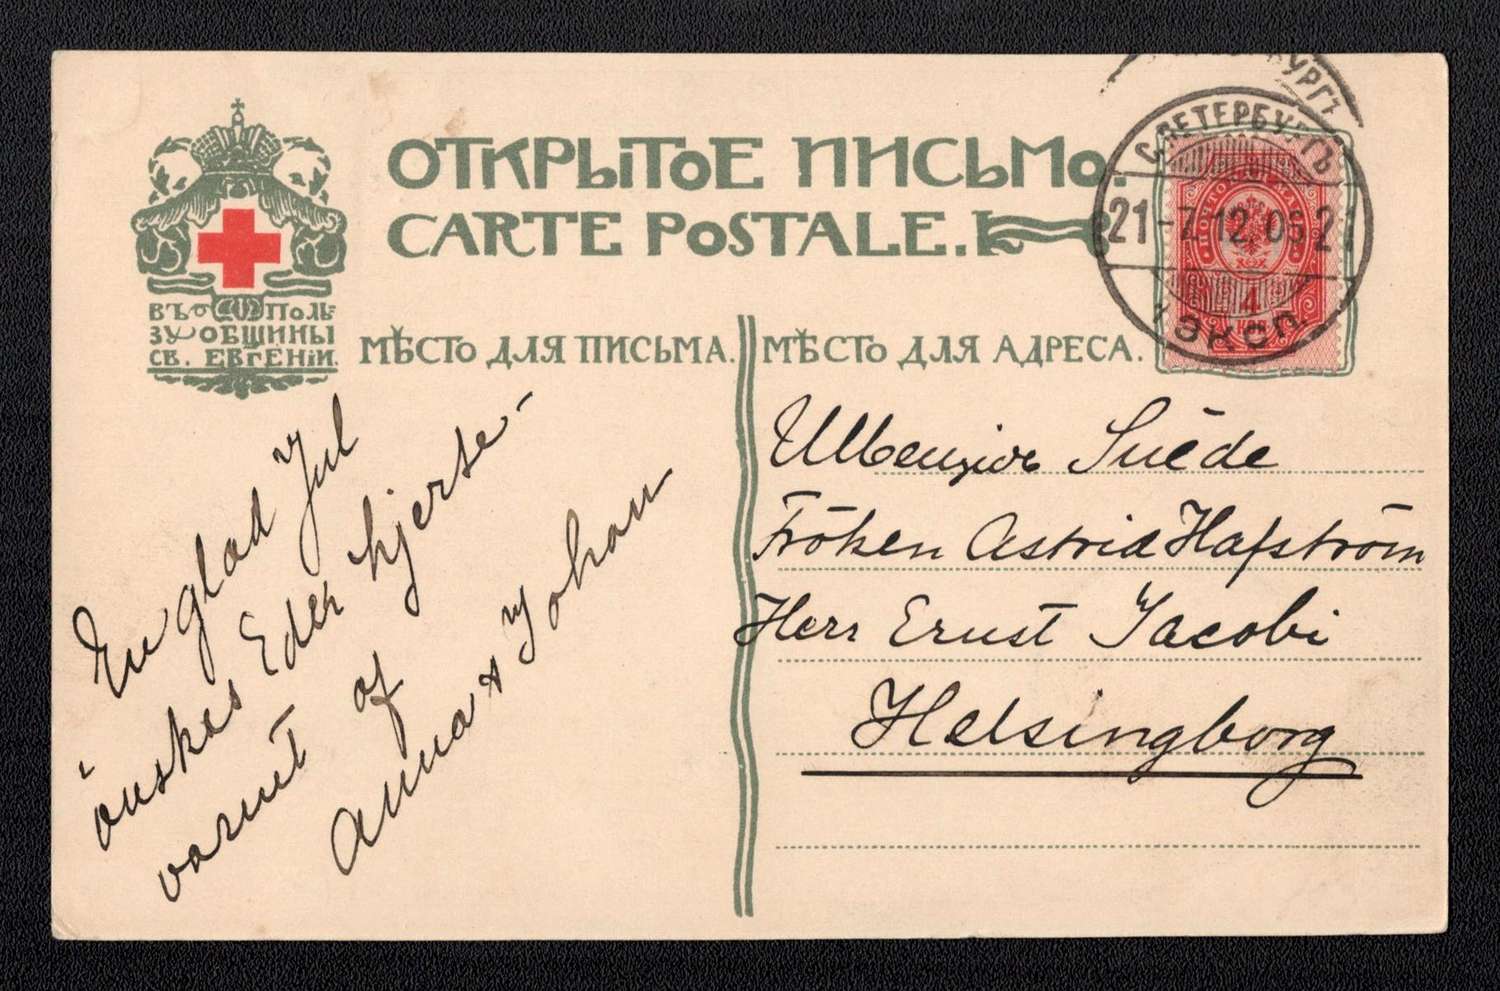 ОТКРЫТОЕ ПИСЬМО.
CARTE POSTALE.
ВЪ ПОЛЬ-
ЗУ ОБЩИНЫ
СВ. ЕВГЕНIИ.
МѢСТО ДЛЯ ПИСЬМА.
МѢСТО ДЛЯ АДРЕСА.
С.ПЕТЕРБУРГЪ
21-7.12.05 21
1 ЭКСП.
4
En glad Jul
önskes Eder hjerte-
varmt af
Anna & Johan
Suède
Fröken Astrid Hafström
Herr Ernst Jacobi
Helsingborg